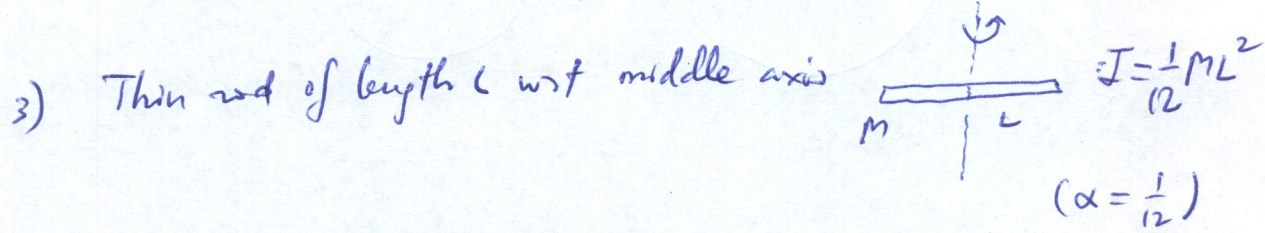 3) Thin rod of length L wrt middle axis
I = 1/12 ML²
M L
(α = 1/12)